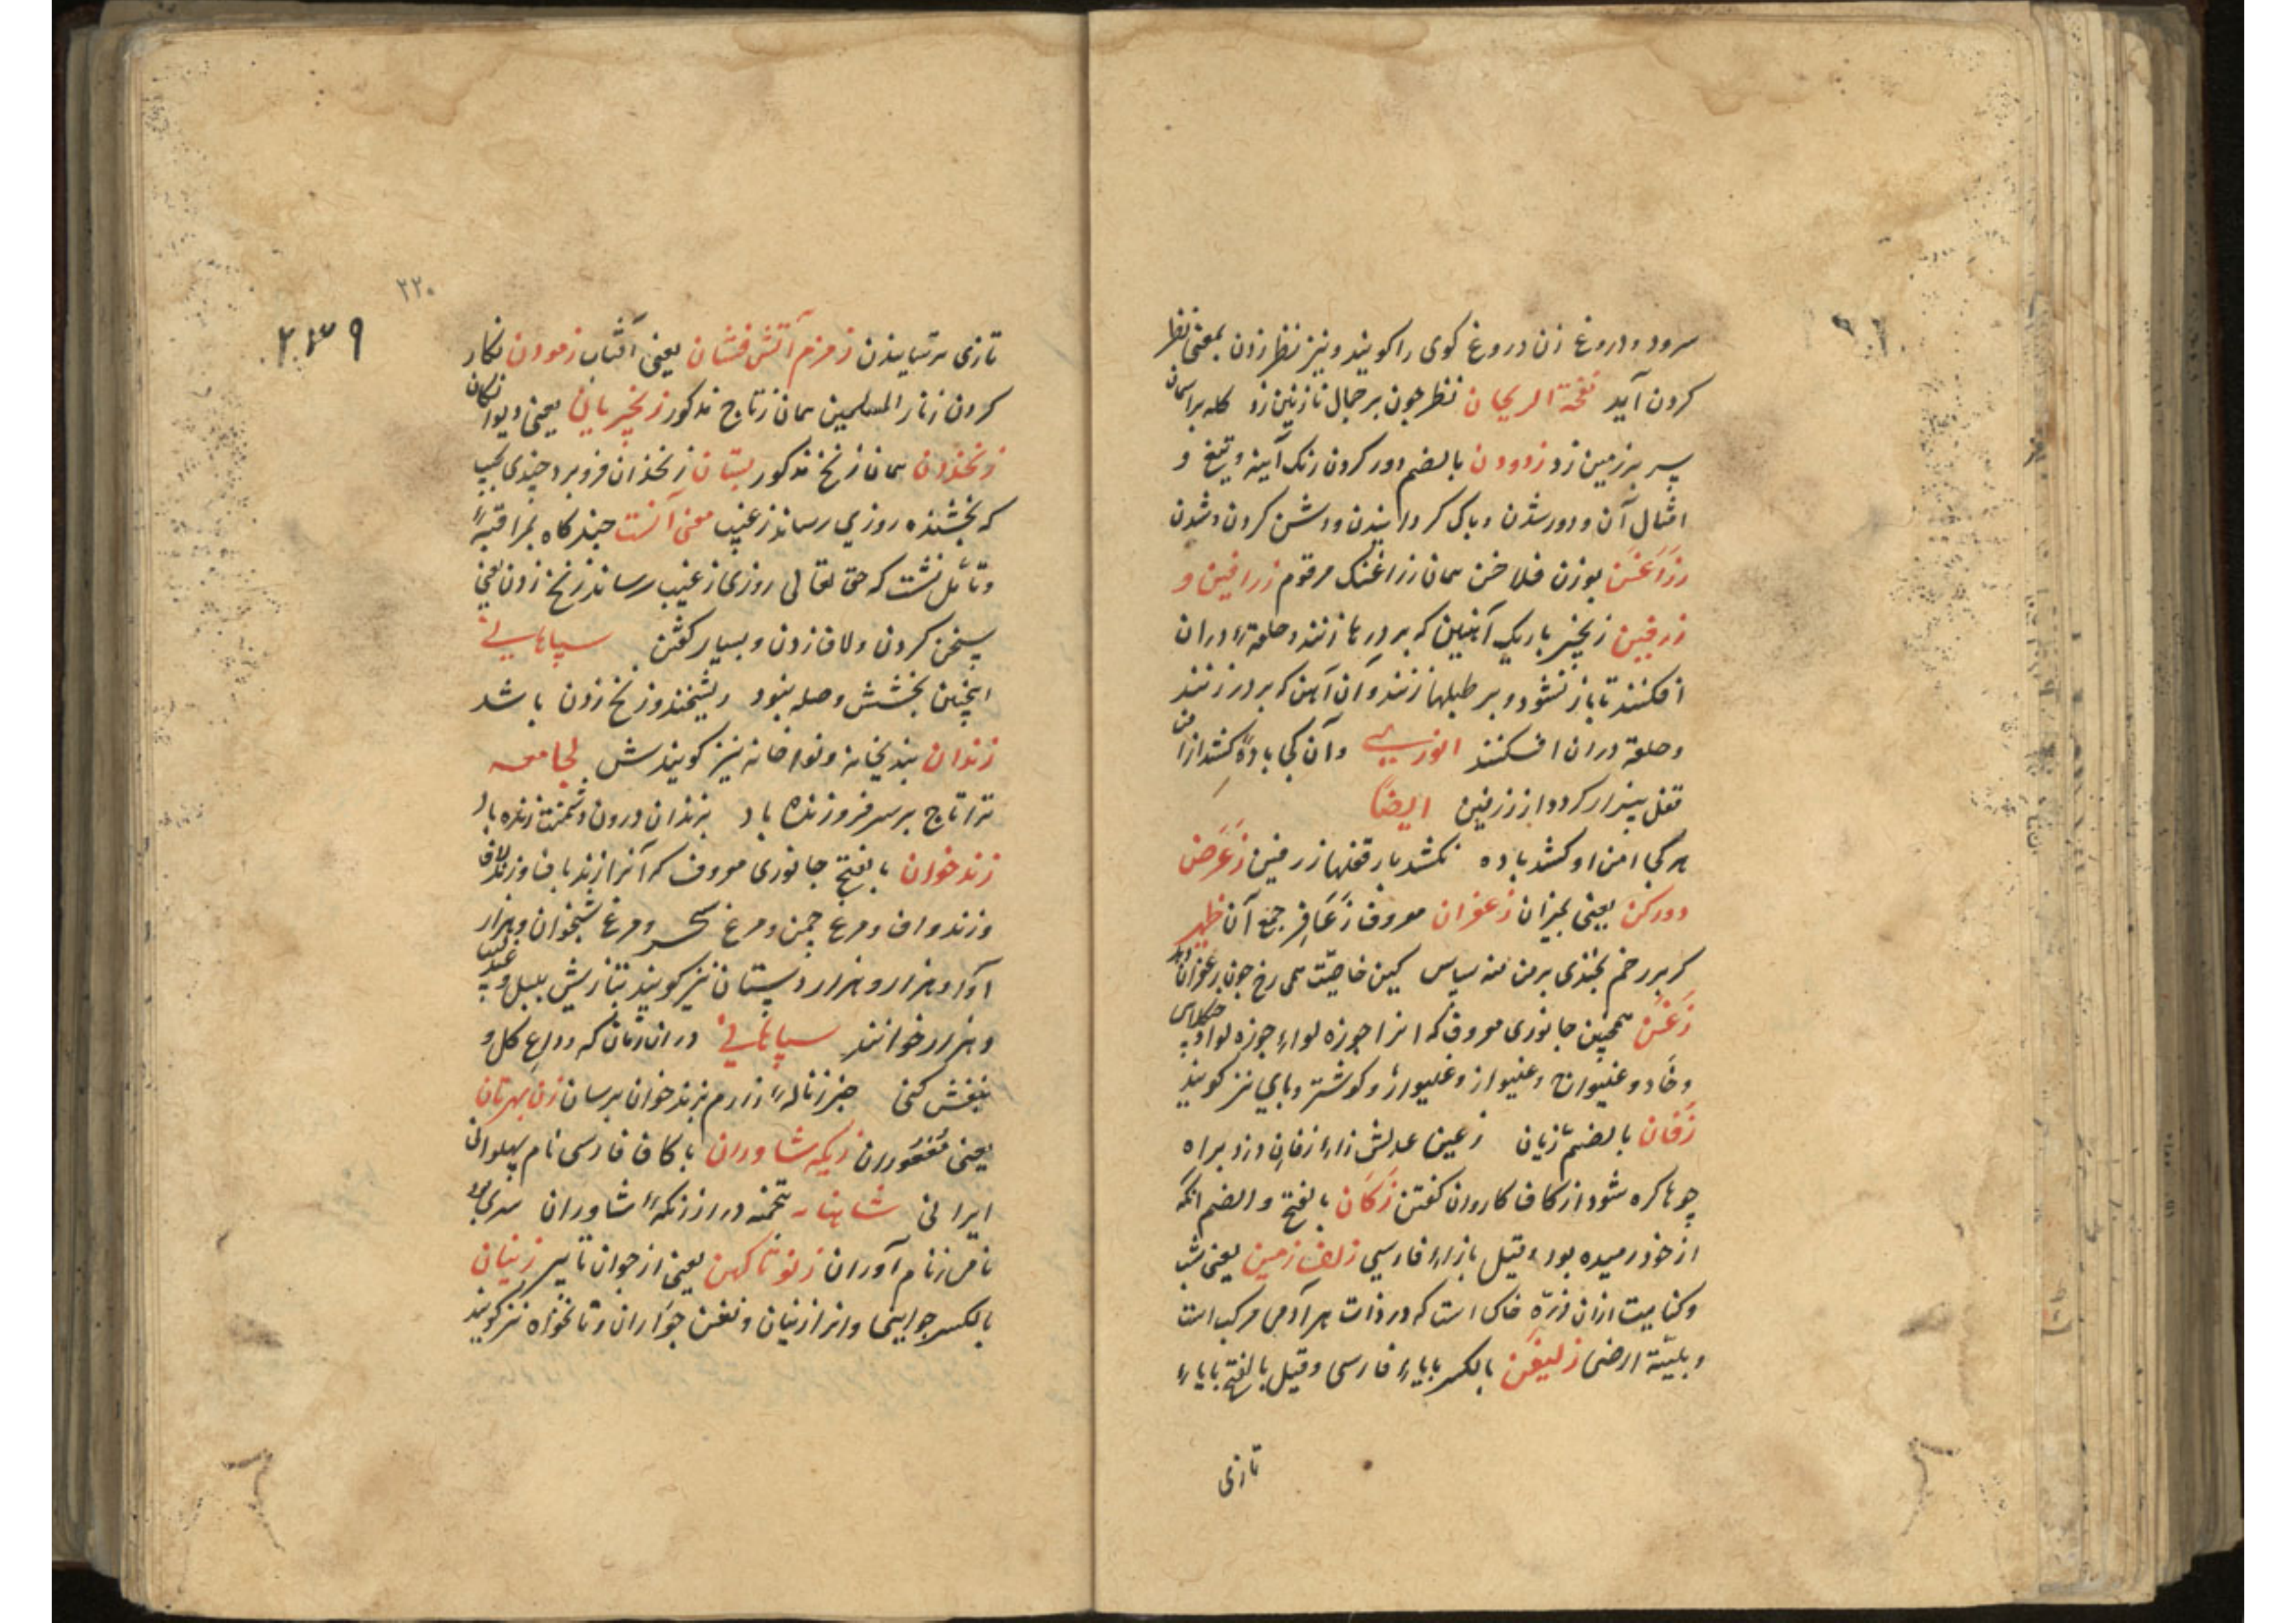 سرود و دروغ زن دروغ کوی را کویند و نیز نظر زدن بمعنی نظر
کردن آید نفحة الریحان نظر چون بر جمال نازنین زد کله بر اسمان
پس بر زمین زد زدودن بالضم دور کردن زنک آینه و تیغ و
امثال آن و دور شدن و پاک کردانیدن و روشن کردن و شدن
زراغن بوزن فلاخن همان زراغنک مرقوم زرافین و
زرفین زنجیر باریک آهنین که بر درها زنند و حلقهٔ دران
افکنند تا باز نشود و بر طبلها زنند و آن آهن که بر در زنند
و حلقه دران افکنند انوری و آن کجا باده کشد از امن
قفل بیزار کردد از زرفین ایضا
هر کجا امن او کشد باده نکشد بار قفلها زرفین زعرض
دور کن یعنی بمیران زعفران معروف زعافر جمع آن ظهیر
کر بر رخم بخندی بر من منه سپاس کین خاصیت همی رخ چون زعفران دهد
زغن همچنین جانوری معروف که انرا جوزه لواء جوزه لوا و
و خاد و غلیواج و غلیواز و غلیواژ و کوشتر با یی نیز کویند
زفان بالضم زبان زعین عدلش زاء زفان دزد براه
چو ها کره شود از کاف کاروان کفتن زکان بالفتح و الضم انکه
از خود رمیده بود و قیل بازاء فارسی زلف زمین یعنی شب
و کنایت ازان ذره خاکی است که در ذات هر آدمی مرکب است
و بلیّه ارضی زلیفن بالکسر بایاء فارسی و قیل بالفتح بایاء
تازی
۲۲۰
۲۳۹
تازی ترسانیدن زمزم آتش فشان یعنی آفتاب زمودن نکار
کردن زنار المسلمین همان زتاج مذکور زنجیریان یعنی دیوانکان
زنخدان همان زنخ مذکور بستان زنخدان فرو برد چندی بجیب
که بخشنده روزی رساند ز غیب معنی آنست چند کاه بمراقبهٔ
و تأمل نشست که حق تعالی روزی از غیب رساند زنخ زدن یعنی
سخن کردن و لاف زدن و بسیار کفتن سپاهانی
اینچنین بخشش و صله نبود ریشخند و زنخ زدن باشد
زندان بندیخانه و نواخانه نیز کویندش لجامعه
ترا تاج بر سر فروزنده باد بزندان درون دشمنت زنده باد
زند خوان بالفتح جانوری معروف که آنرا زند باف و زند لاف
و زند واف و مرغ چمن و مرغ سحر و مرغ شبخوان و هزار
آوا و هزار و هزار دستان نیز کویند بتازیش بلبل و عندلیب
و هزار خوانند سپاهانی دران زمان که وداع کل و
بنفش کنی جز ناله زارم ز زند خوان برسان زن بهرتان
یعنی زنکه شاوران با کاف فارسی نام پهلوانی
ایرانی شاهنامه تخمه در از زنکهٔ شاوران
نامی ز نام آوران ز نو تا کهن یعنی از جوان تا پیر زنیان
بالکسر جواینی و انرا زنیان و نغن جواران و نانخواه نیز کویند